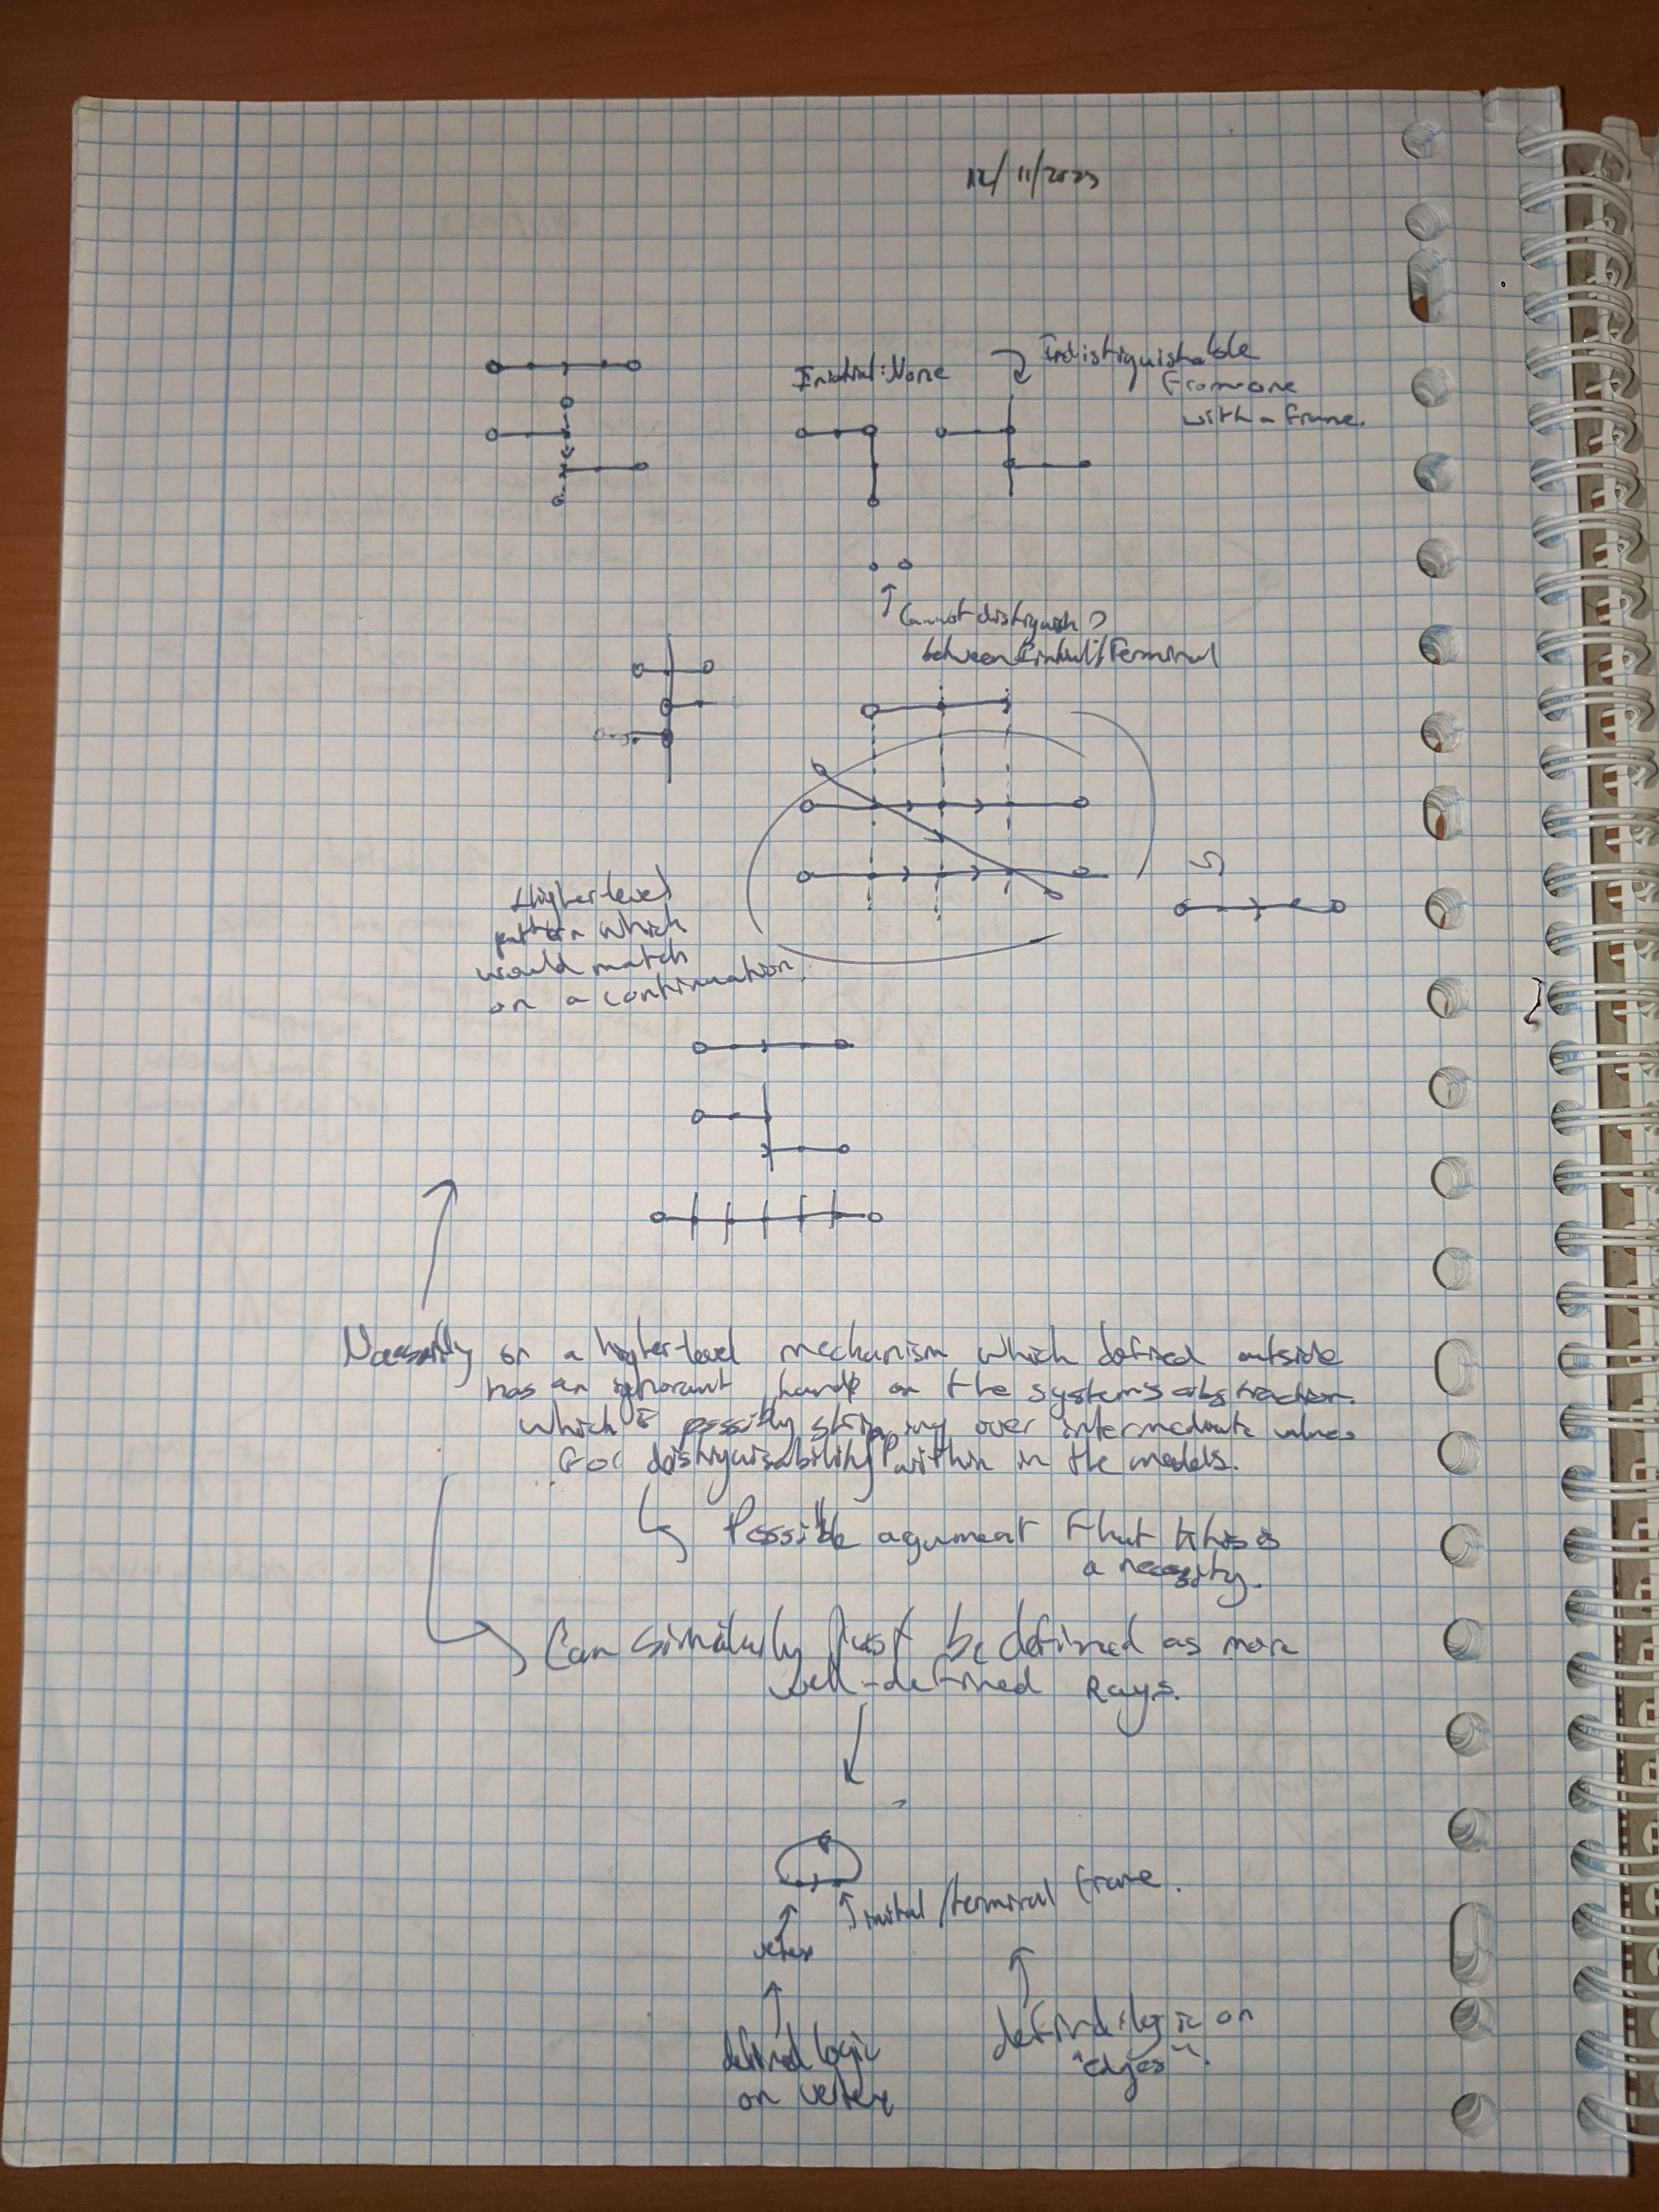 12/11/2023
Initial: None
Indistiguishable
from one
with a frame.
Cannot distiguish
between Initial/Terminal
Higher-level
pattern which
would match
on a continuation.
on a higher-level mechanism which defined outside
has an ignorant hand on the system's abstraction.
which is possibly skipping over intermediate values
for distiguisability within in the models.
Possible agument that this is
a necessity.
Can similarly just be defined as more
well-defined Rays.
initial/terminal frame.
vertex
defined logic
on vertex
defined logic on
"edges".